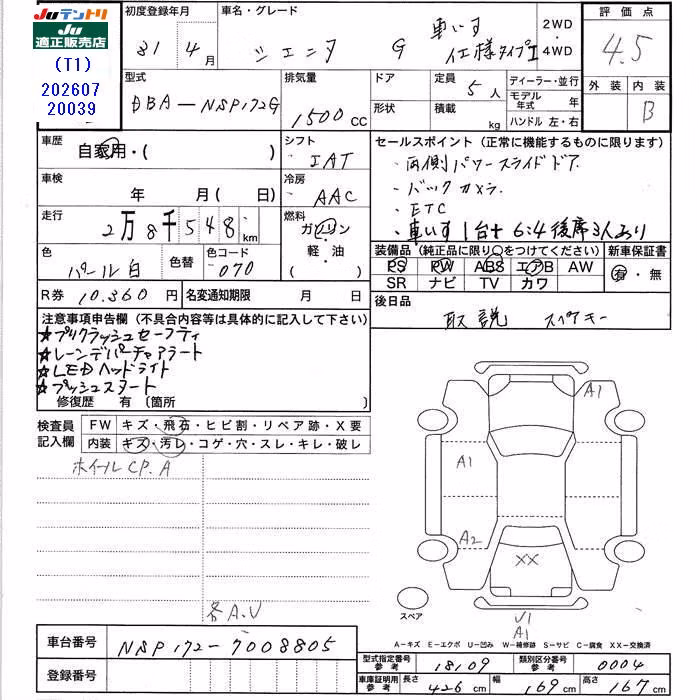 Juテントリ
Ju
適正販売店
(T1)
202607
20039
初度登録年月
31 4月
車名・グレード
シエンタ G 車いす仕様タイプI
2WD
・
4WD
評価点
4.5
型式
DBA-NSP172G
排気量
1500 CC
ドア
形状
定員 5人
積載 kg
ディーラー・並行
モデル年式 年
ハンドル 左・右
外装 内装
B
車歴
自家用・( )
シフト
IAT
セールスポイント(正常に機能するものに限ります)
・両側パワースライドドア
・バックカメラ
・ETC
・車いす1台+6:4後席3人あり
車検 年 月( 日)
冷房
AAC
走行
2万8千548 km
燃料
ガソリン
・軽・油・
( )
色
パール白
色替
色コード
070
装備品(純正品に限り○をつけてください)
PS PW ABS エアB AW
SR ナビ TV カワ
新車保証書
有・無
R券 10,360円
名変通知期限 月 日
後日品
取説 スペアキー
注意事項申告欄(不具合内容等は具体的に記入して下さい)
★プリクラッシュセーフティ
★レーンデパーチャアラート
★LEDヘッドライト
★プッシュスタート
修復歴 有〔箇所 〕
検査員記入欄
FW キズ・飛石・ヒビ割・リペア跡・X要
内装 キズ・汚レ・コゲ・穴・スレ・キレ・破レ
ホイールCP.A
各A.U
A1
A1
A2
XX
スペア
V1
A1
A-キズ E-エクボ U-凹み W-補修跡 S-サビ C-腐食 XX-交換済
車台番号
NSP172-7008805
登録番号
型式指定番号 参考 18109
類別区分番号 参考 0004
車庫証明用 参考 長さ 426cm 幅 169cm 高さ 167cm